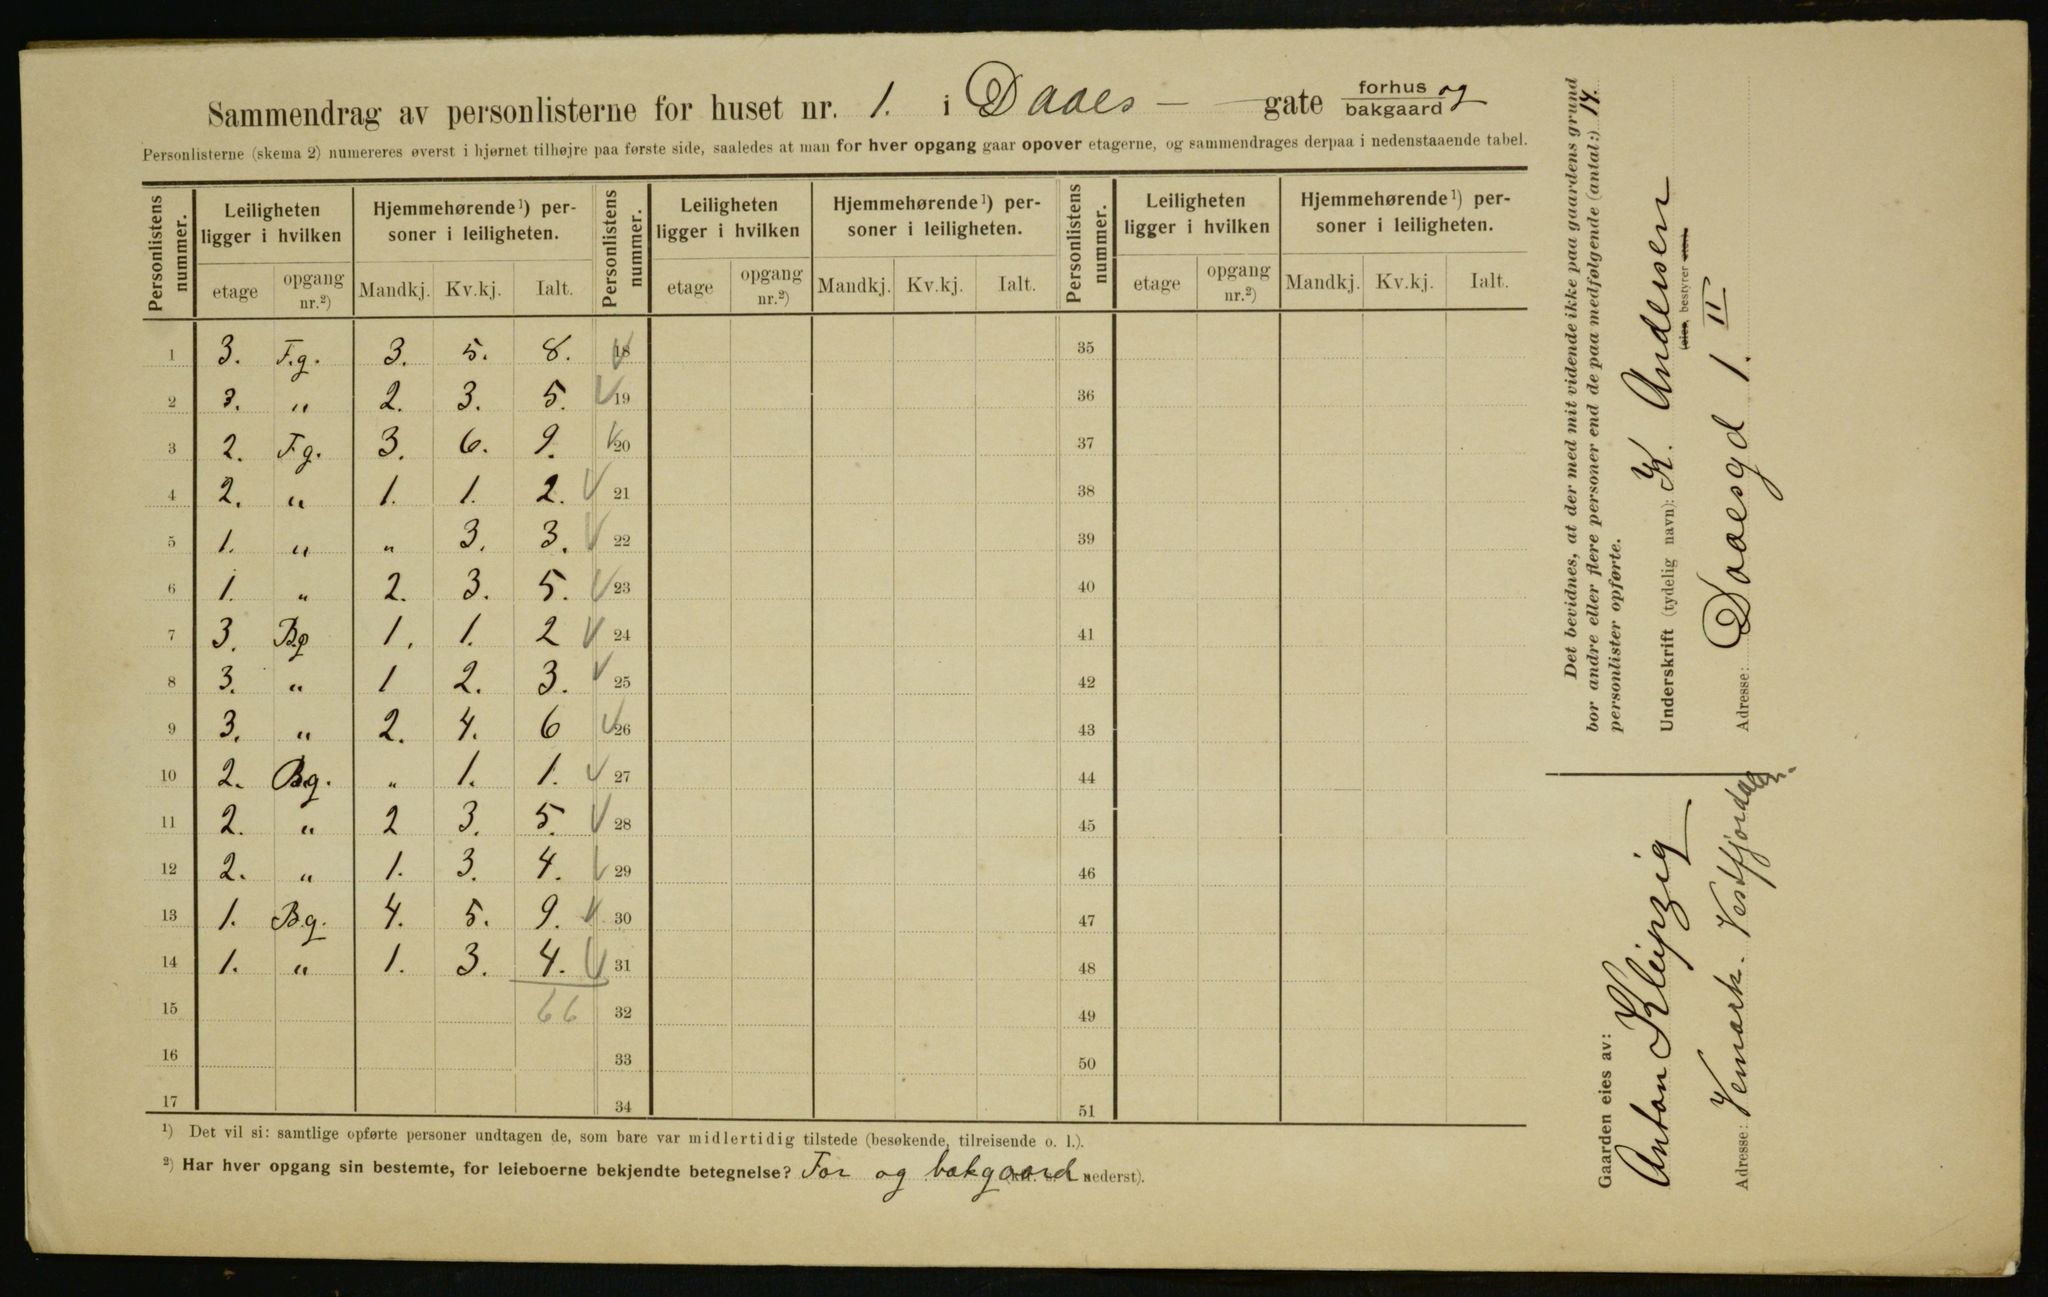 Sammendrag av personlisterne for huset nr. 1. i Daaes - gate forhus og bakgaard
Personlisterne (skema 2) numereres øverst i hjørnet tilhøjre paa første side, saaledes at man for hver opgang gaar opover etagerne, og sammendrages derpaa i nedenstaaende tabel.
Personlistens nummer. Leiligheten ligger i hvilken Hjemmehørende¹) personer i leiligheten. Personlistens nummer. Leiligheten ligger i hvilken Hjemmehørende¹) personer i leiligheten. Personlistens nummer. Leiligheten ligger i hvilken Hjemmehørende¹) personer i leiligheten.
etage opgang nr.²) Mandkj. Kv.kj. Ialt. etage opgang nr.²) Mandkj. Kv.kj. Ialt. etage opgang nr.²) Mandkj. Kv.kj. Ialt.
1 3. F.g. 3. 5. 8. 18 35
2 3. " 2. 3. 5. 19 36
3 2. F.g. 3. 6. 9. 20 37
4 2. " 1. 1. 2. 21 38
5 1. " " 3. 3. 22 39
6 1. " 2. 3. 5. 23 40
7 3. B.g 1. 1. 2 24 41
8 3. " 1 2. 3. 25 42
9 3. " 2. 4. 6 26 43
10 2. B.g. " 1. 1. 27 44
11 2. " 2 3. 5. 28 45
12 2. " 1. 3. 4. 29 46
13 1. B.g. 4. 5. 9. 30 47
14 1. " 1. 3. 4. 31 48
15 66 32 49
16 33 50
17 34 51
¹) Det vil si: samtlige opførte personer undtagen de, som bare var midlertidig tilstede (besøkende, tilreisende o. l.).
²) Har hver opgang sin bestemte, for leieboerne bekjendte betegnelse? For og bakgaard nederst).
Det bevidnes, at der med mit vidende ikke paa gaardens grund
bor andre eller flere personer end de paa medfølgende (antal:) 14.
personlister opførte.
Underskrift (tydelig navn): K. Andersen
(eier, bestyrer
Adresse: Daaesgd 1. II
Gaarden eies av:
Anton Kleipzig
Adresse: Vemark. Vestfjordalen.